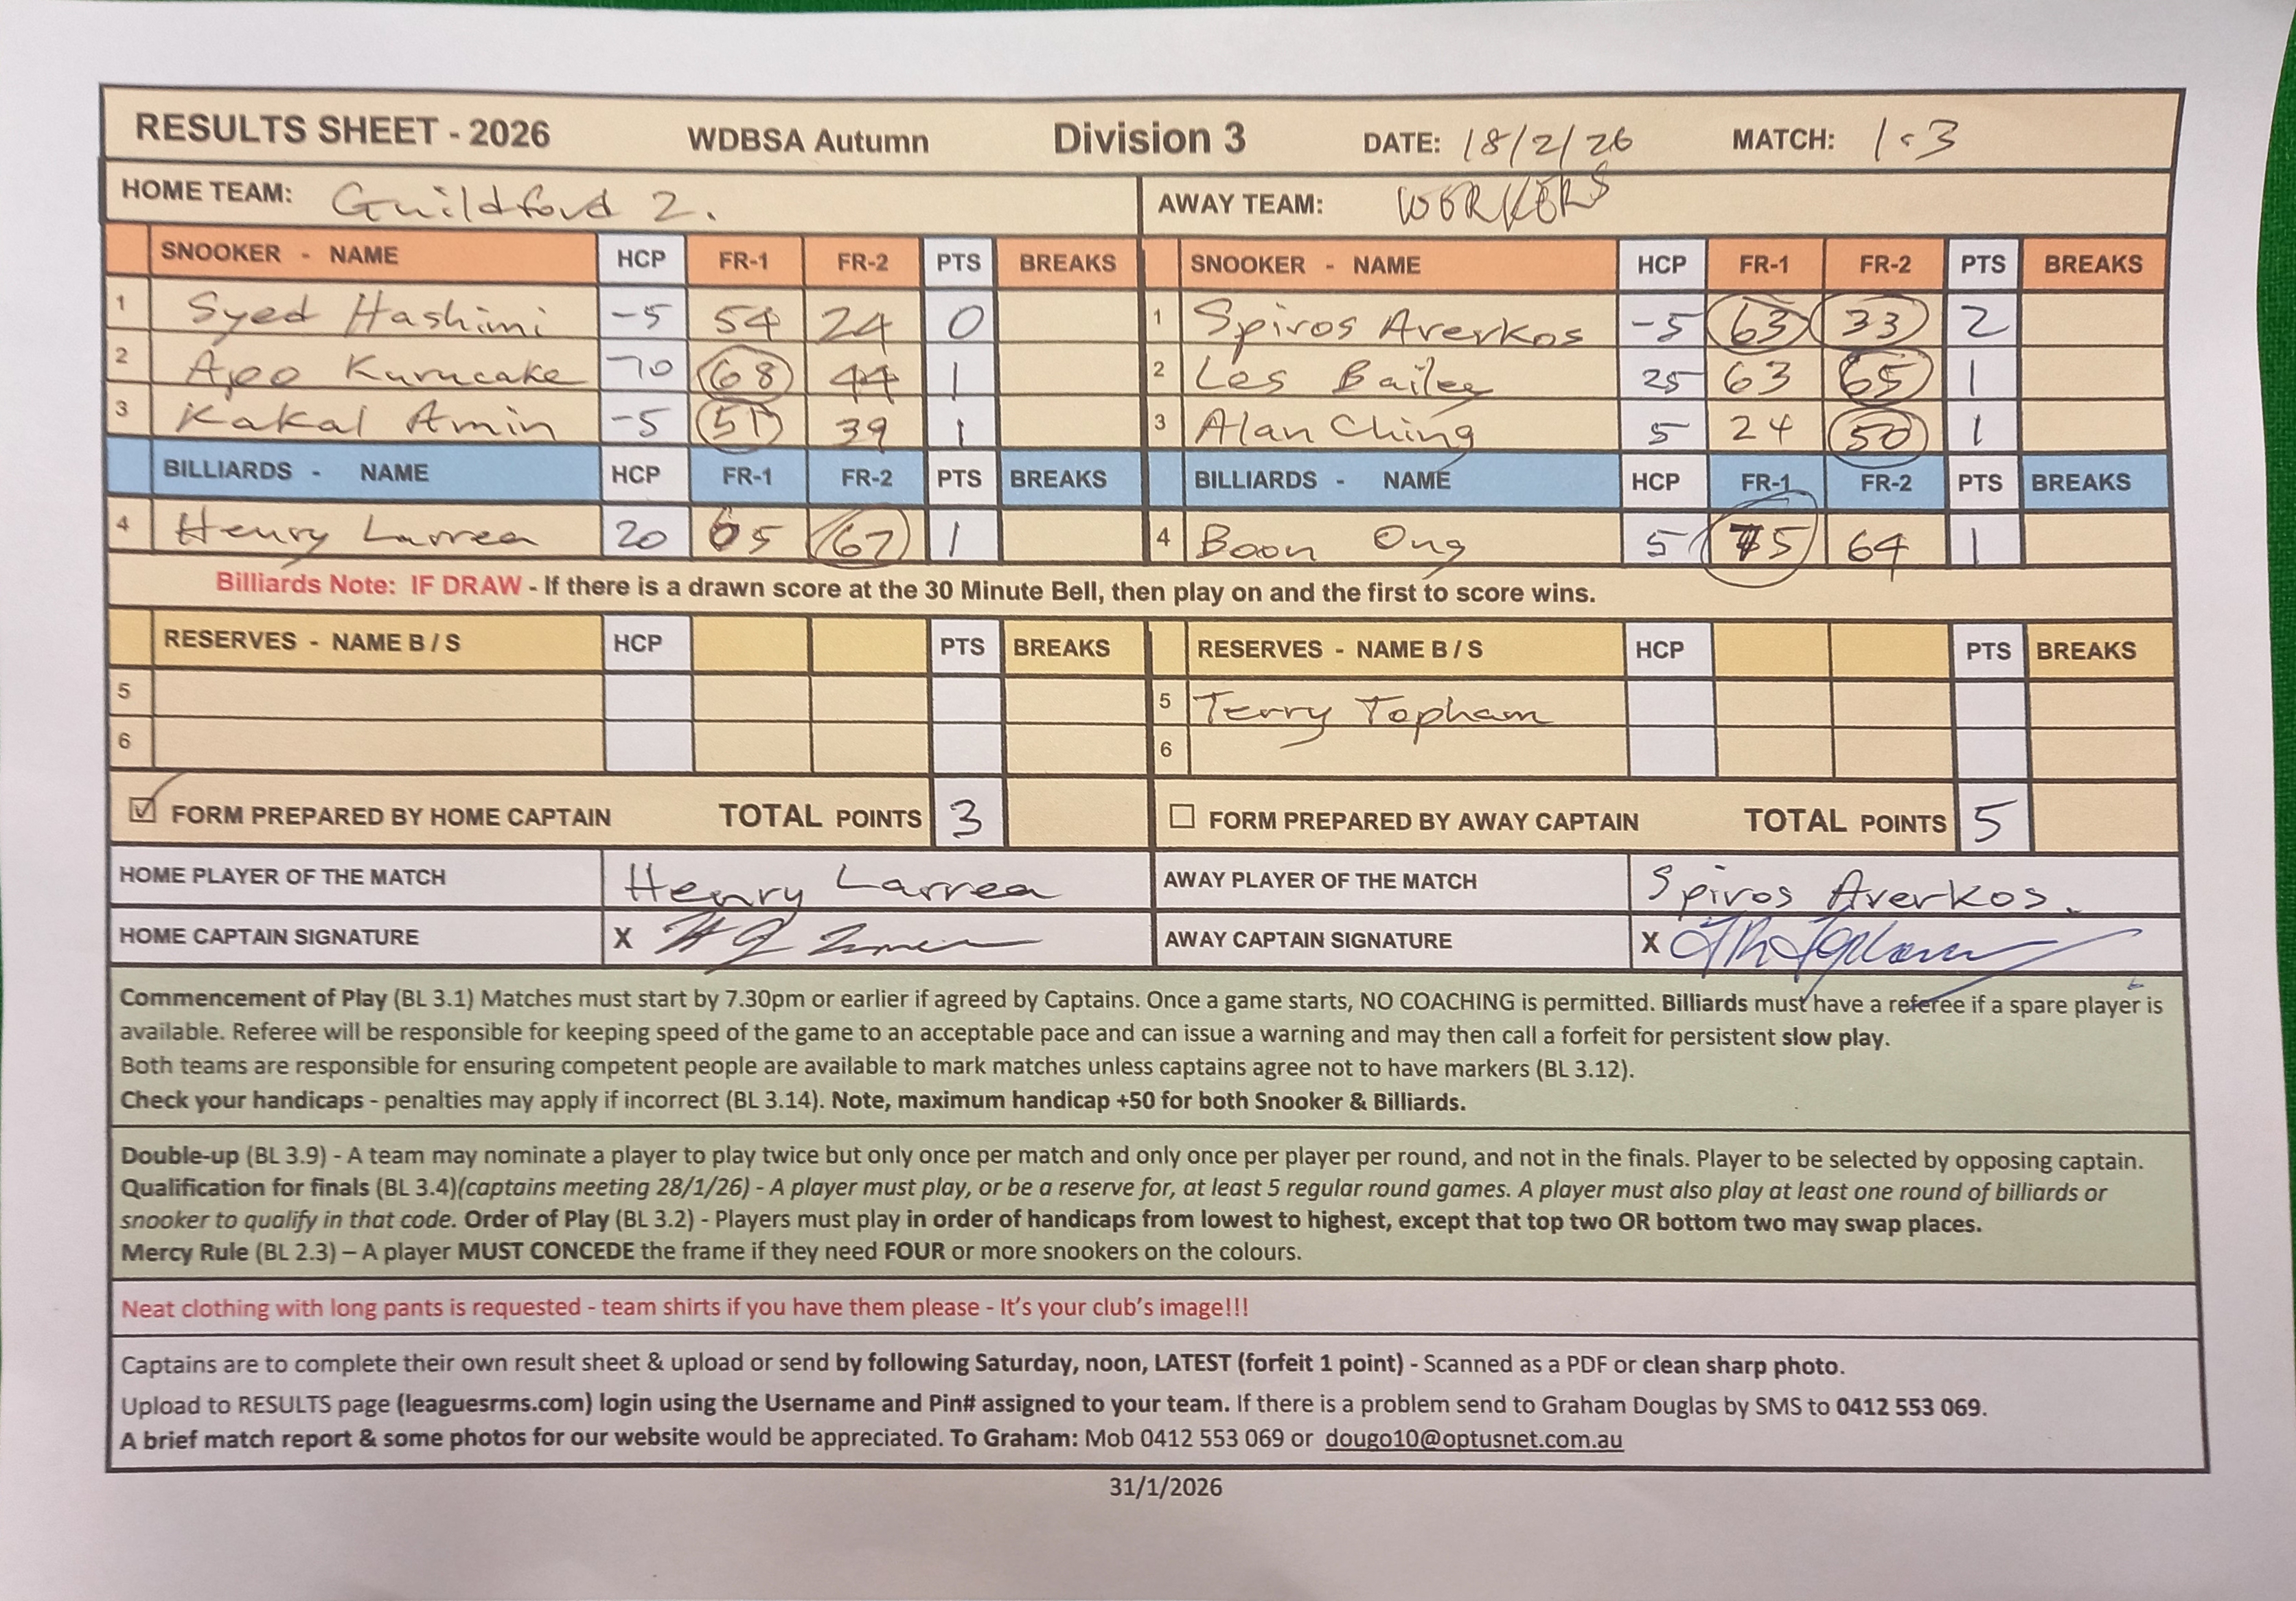 RESULTS SHEET - 2026 WDBSA Autumn Division 3 DATE: 18/2/26 MATCH: 1.3
HOME TEAM: Guildford 2. AWAY TEAM: WORKERS
SNOOKER - NAME HCP FR-1 FR-2 PTS BREAKS SNOOKER - NAME HCP FR-1 FR-2 PTS BREAKS
1 Syed Hashimi -5 54 24 0 1 Spiros Averkos -5 63 33 2
2 Apo Kurucake -10 68 44 1 2 Les Bailey 25 63 65 1
3 Kakal Amin -5 51 39 1 3 Alan Ching 5 24 50 1
BILLIARDS - NAME HCP FR-1 FR-2 PTS BREAKS BILLIARDS - NAME HCP FR-1 FR-2 PTS BREAKS
4 Henry Larrea 20 65 67 1 4 Boon Ong 5 75 64 1
Billiards Note: IF DRAW - If there is a drawn score at the 30 Minute Bell, then play on and the first to score wins.
RESERVES - NAME B / S HCP PTS BREAKS RESERVES - NAME B / S HCP PTS BREAKS
5 5 Terry Topham
6 6
FORM PREPARED BY HOME CAPTAIN TOTAL POINTS 3 FORM PREPARED BY AWAY CAPTAIN TOTAL POINTS 5
HOME PLAYER OF THE MATCH Henry Larrea AWAY PLAYER OF THE MATCH Spiros Averkos.
HOME CAPTAIN SIGNATURE X AWAY CAPTAIN SIGNATURE X
Commencement of Play (BL 3.1) Matches must start by 7.30pm or earlier if agreed by Captains. Once a game starts, NO COACHING is permitted. Billiards must have a referee if a spare player is
available. Referee will be responsible for keeping speed of the game to an acceptable pace and can issue a warning and may then call a forfeit for persistent slow play.
Both teams are responsible for ensuring competent people are available to mark matches unless captains agree not to have markers (BL 3.12).
Check your handicaps - penalties may apply if incorrect (BL 3.14). Note, maximum handicap +50 for both Snooker & Billiards.
Double-up (BL 3.9) - A team may nominate a player to play twice but only once per match and only once per player per round, and not in the finals. Player to be selected by opposing captain.
Qualification for finals (BL 3.4)(captains meeting 28/1/26) - A player must play, or be a reserve for, at least 5 regular round games. A player must also play at least one round of billiards or
snooker to qualify in that code. Order of Play (BL 3.2) - Players must play in order of handicaps from lowest to highest, except that top two OR bottom two may swap places.
Mercy Rule (BL 2.3) – A player MUST CONCEDE the frame if they need FOUR or more snookers on the colours.
Neat clothing with long pants is requested - team shirts if you have them please - It's your club's image!!!
Captains are to complete their own result sheet & upload or send by following Saturday, noon, LATEST (forfeit 1 point) - Scanned as a PDF or clean sharp photo.
Upload to RESULTS page (leaguesrms.com) login using the Username and Pin# assigned to your team. If there is a problem send to Graham Douglas by SMS to 0412 553 069.
A brief match report & some photos for our website would be appreciated. To Graham: Mob 0412 553 069 or dougo10@optusnet.com.au
31/1/2026